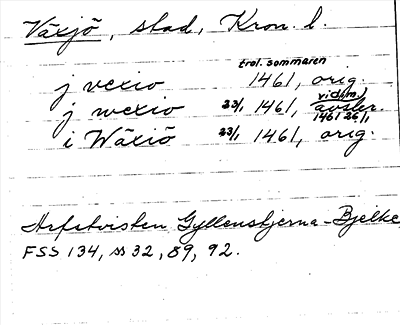 Växjö, stad, Kron. l.
trol. sommaren
j vexio 1461, orig.
vidim.
j wexio 23/1 1461, avskr.
1461 26/1
i Wäxiö 23/1 1461, orig.
Arfstvisten Gyllenstjerna-Bjelke,
FSS 134, ss 32, 89, 92.